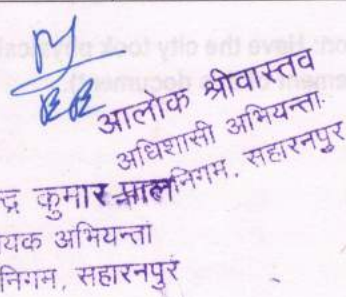 on: Have the city took physical
document)
आलोक श्रीवास्तव
अधिशासी अभियन्ता
निगम, सहारनपुर
न्द्र कुमार पाल
यक अभियन्ता
निगम, सहारनपुर